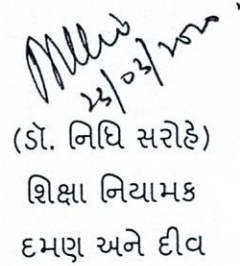 23/03/2020
(ડૉ. નિધિ સરોહે)
શિક્ષા નિયામક
દમણ અને દીવ